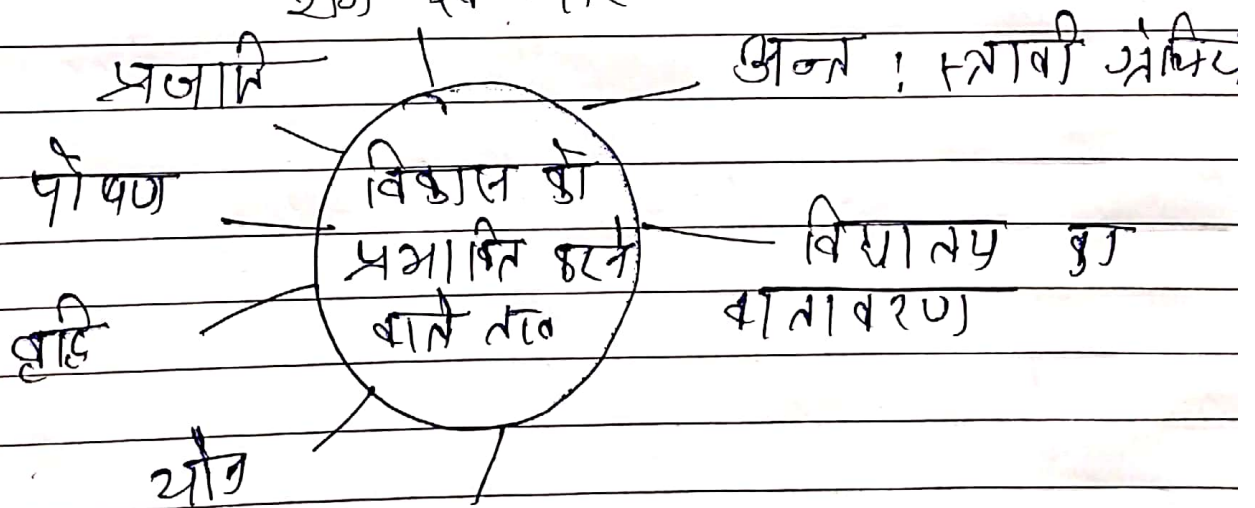 प्रजाति
अन्त : स्त्रावी ग्रंथिय
पोषण
विकास को
प्रभावित करने
वाले तत्व
विद्यालय का
वातावरण
बुद्धि
यौन